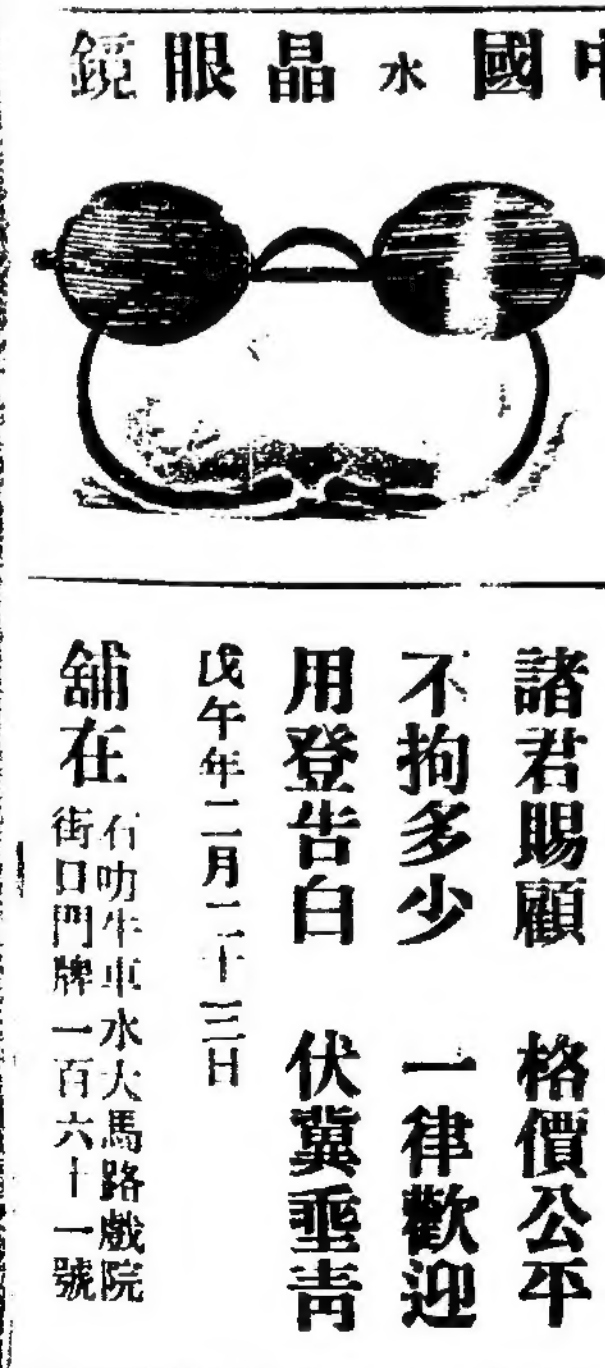 中國水晶眼鏡
諸君賜顧 格價公平
不拘多少 一律歡迎
用登告白 伏冀垂青
戊午年二月二十三日
舖在
石叻牛車水大馬路戲院
街口門牌一百六十一號